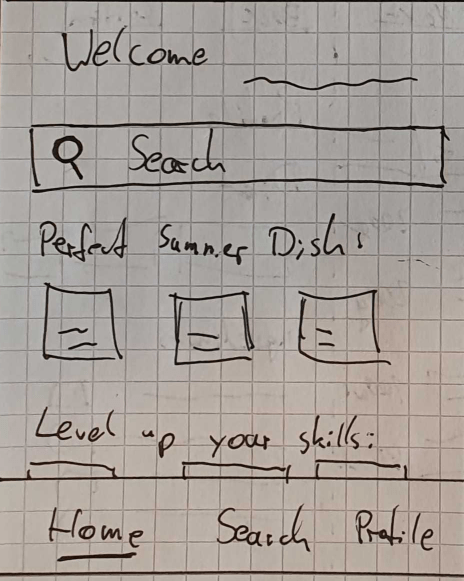 Welcome
Search
Perfect Summer Dish:
Level up your skills:
Home Search Profile